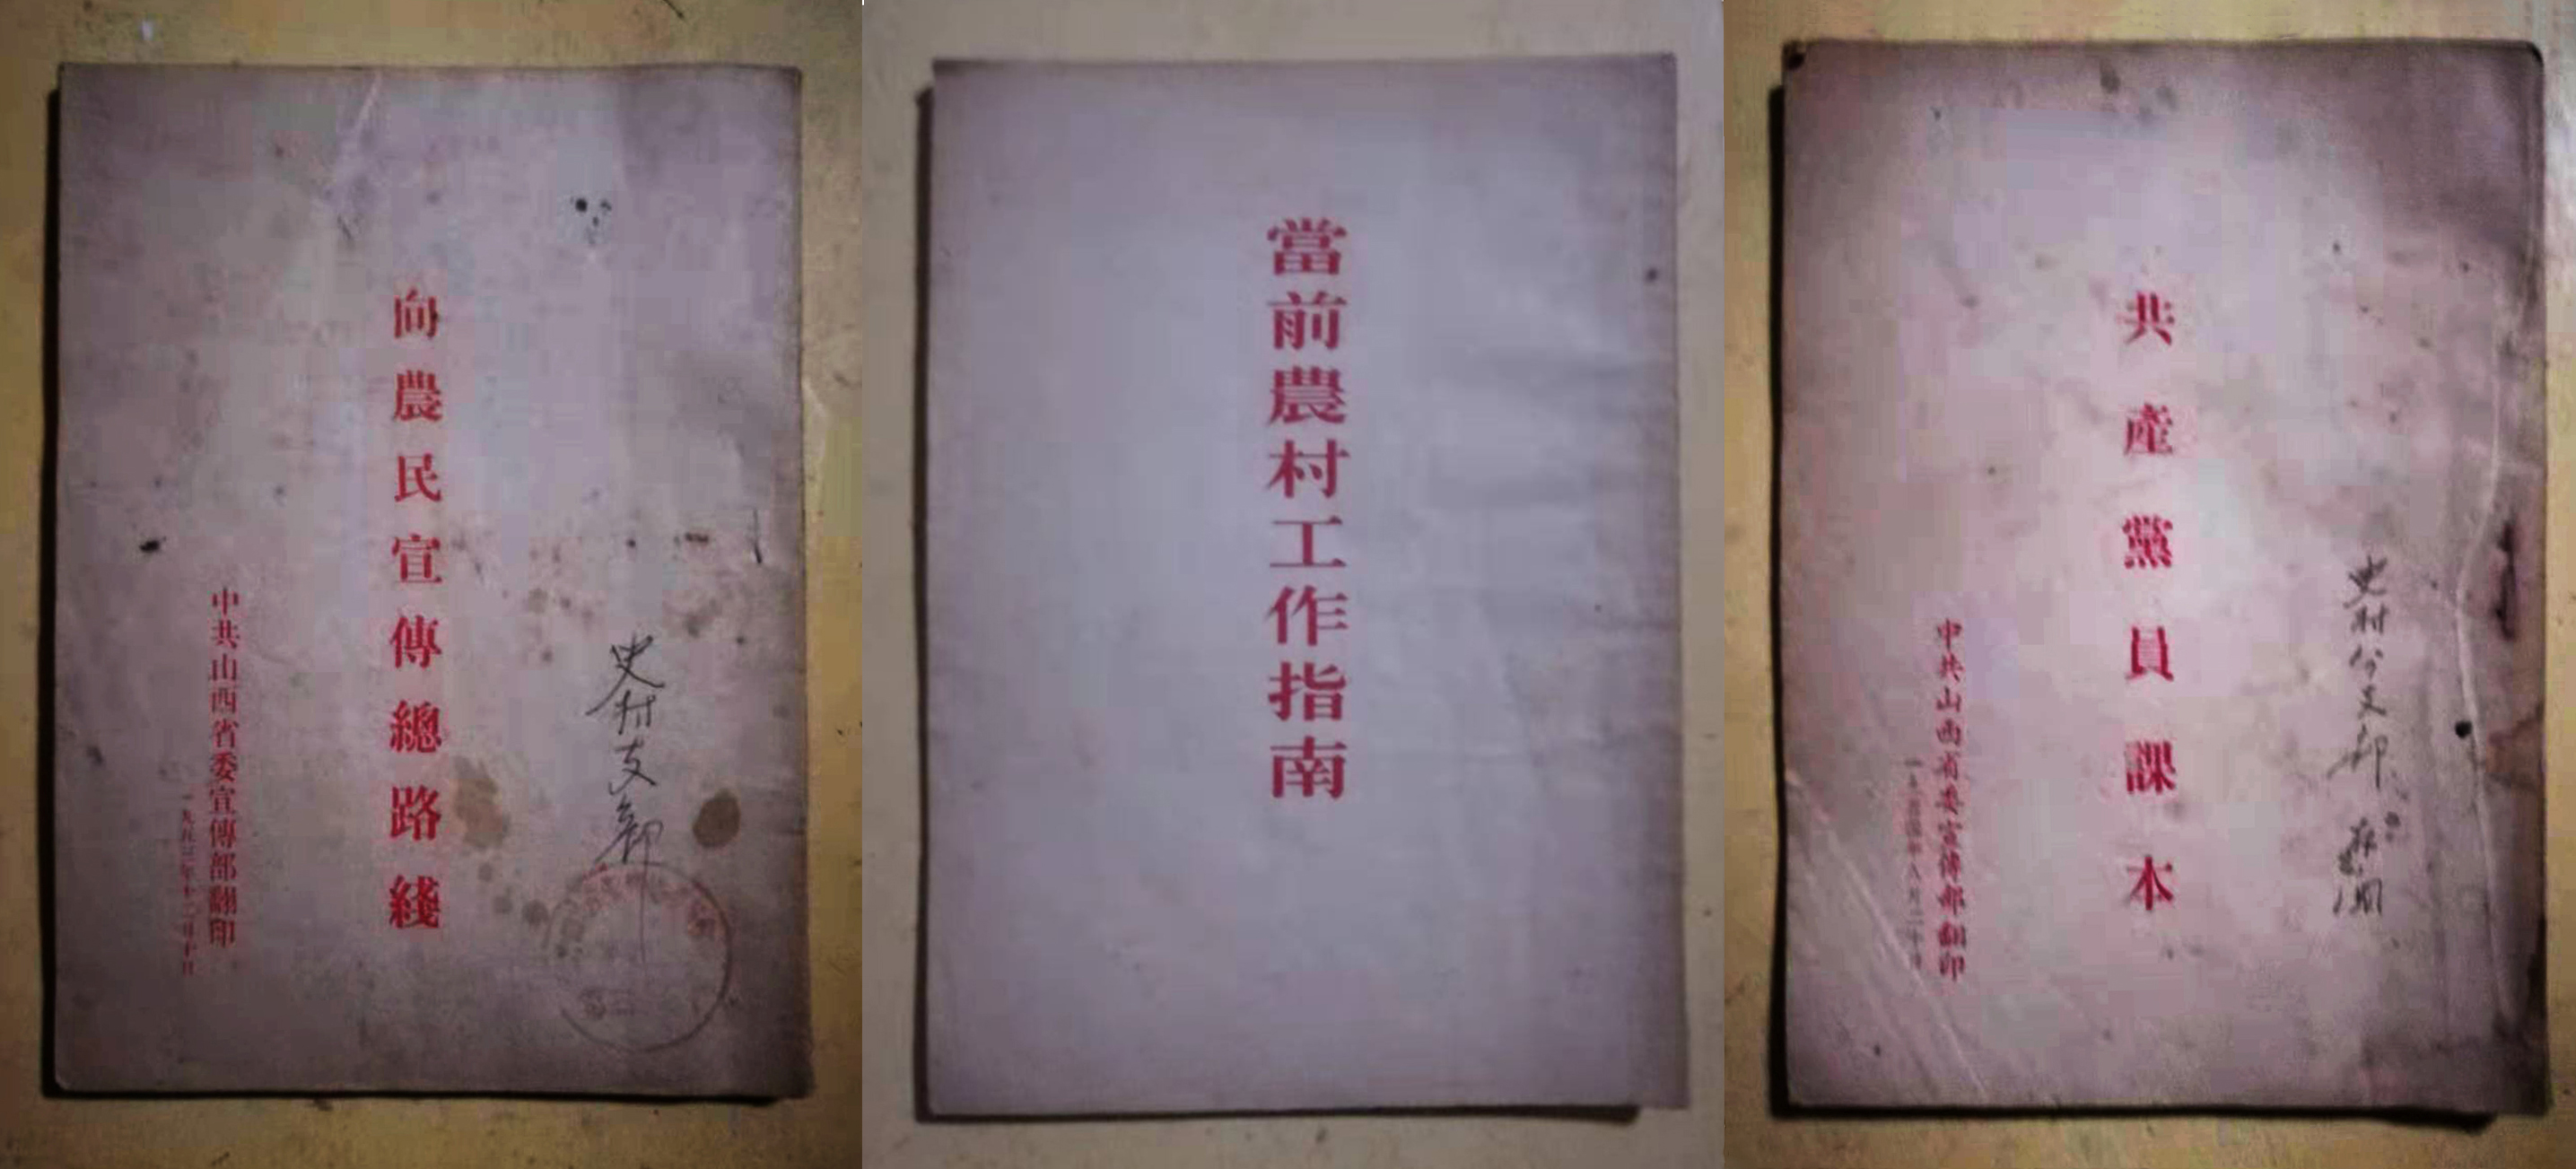 史村支部
向農民宣傳總路綫
中共山西省委宣傳部翻印
一九五三年十二月十日
當前農村工作指南
史村分支部
共產黨員課本
中共山西省委宣傳部翻印